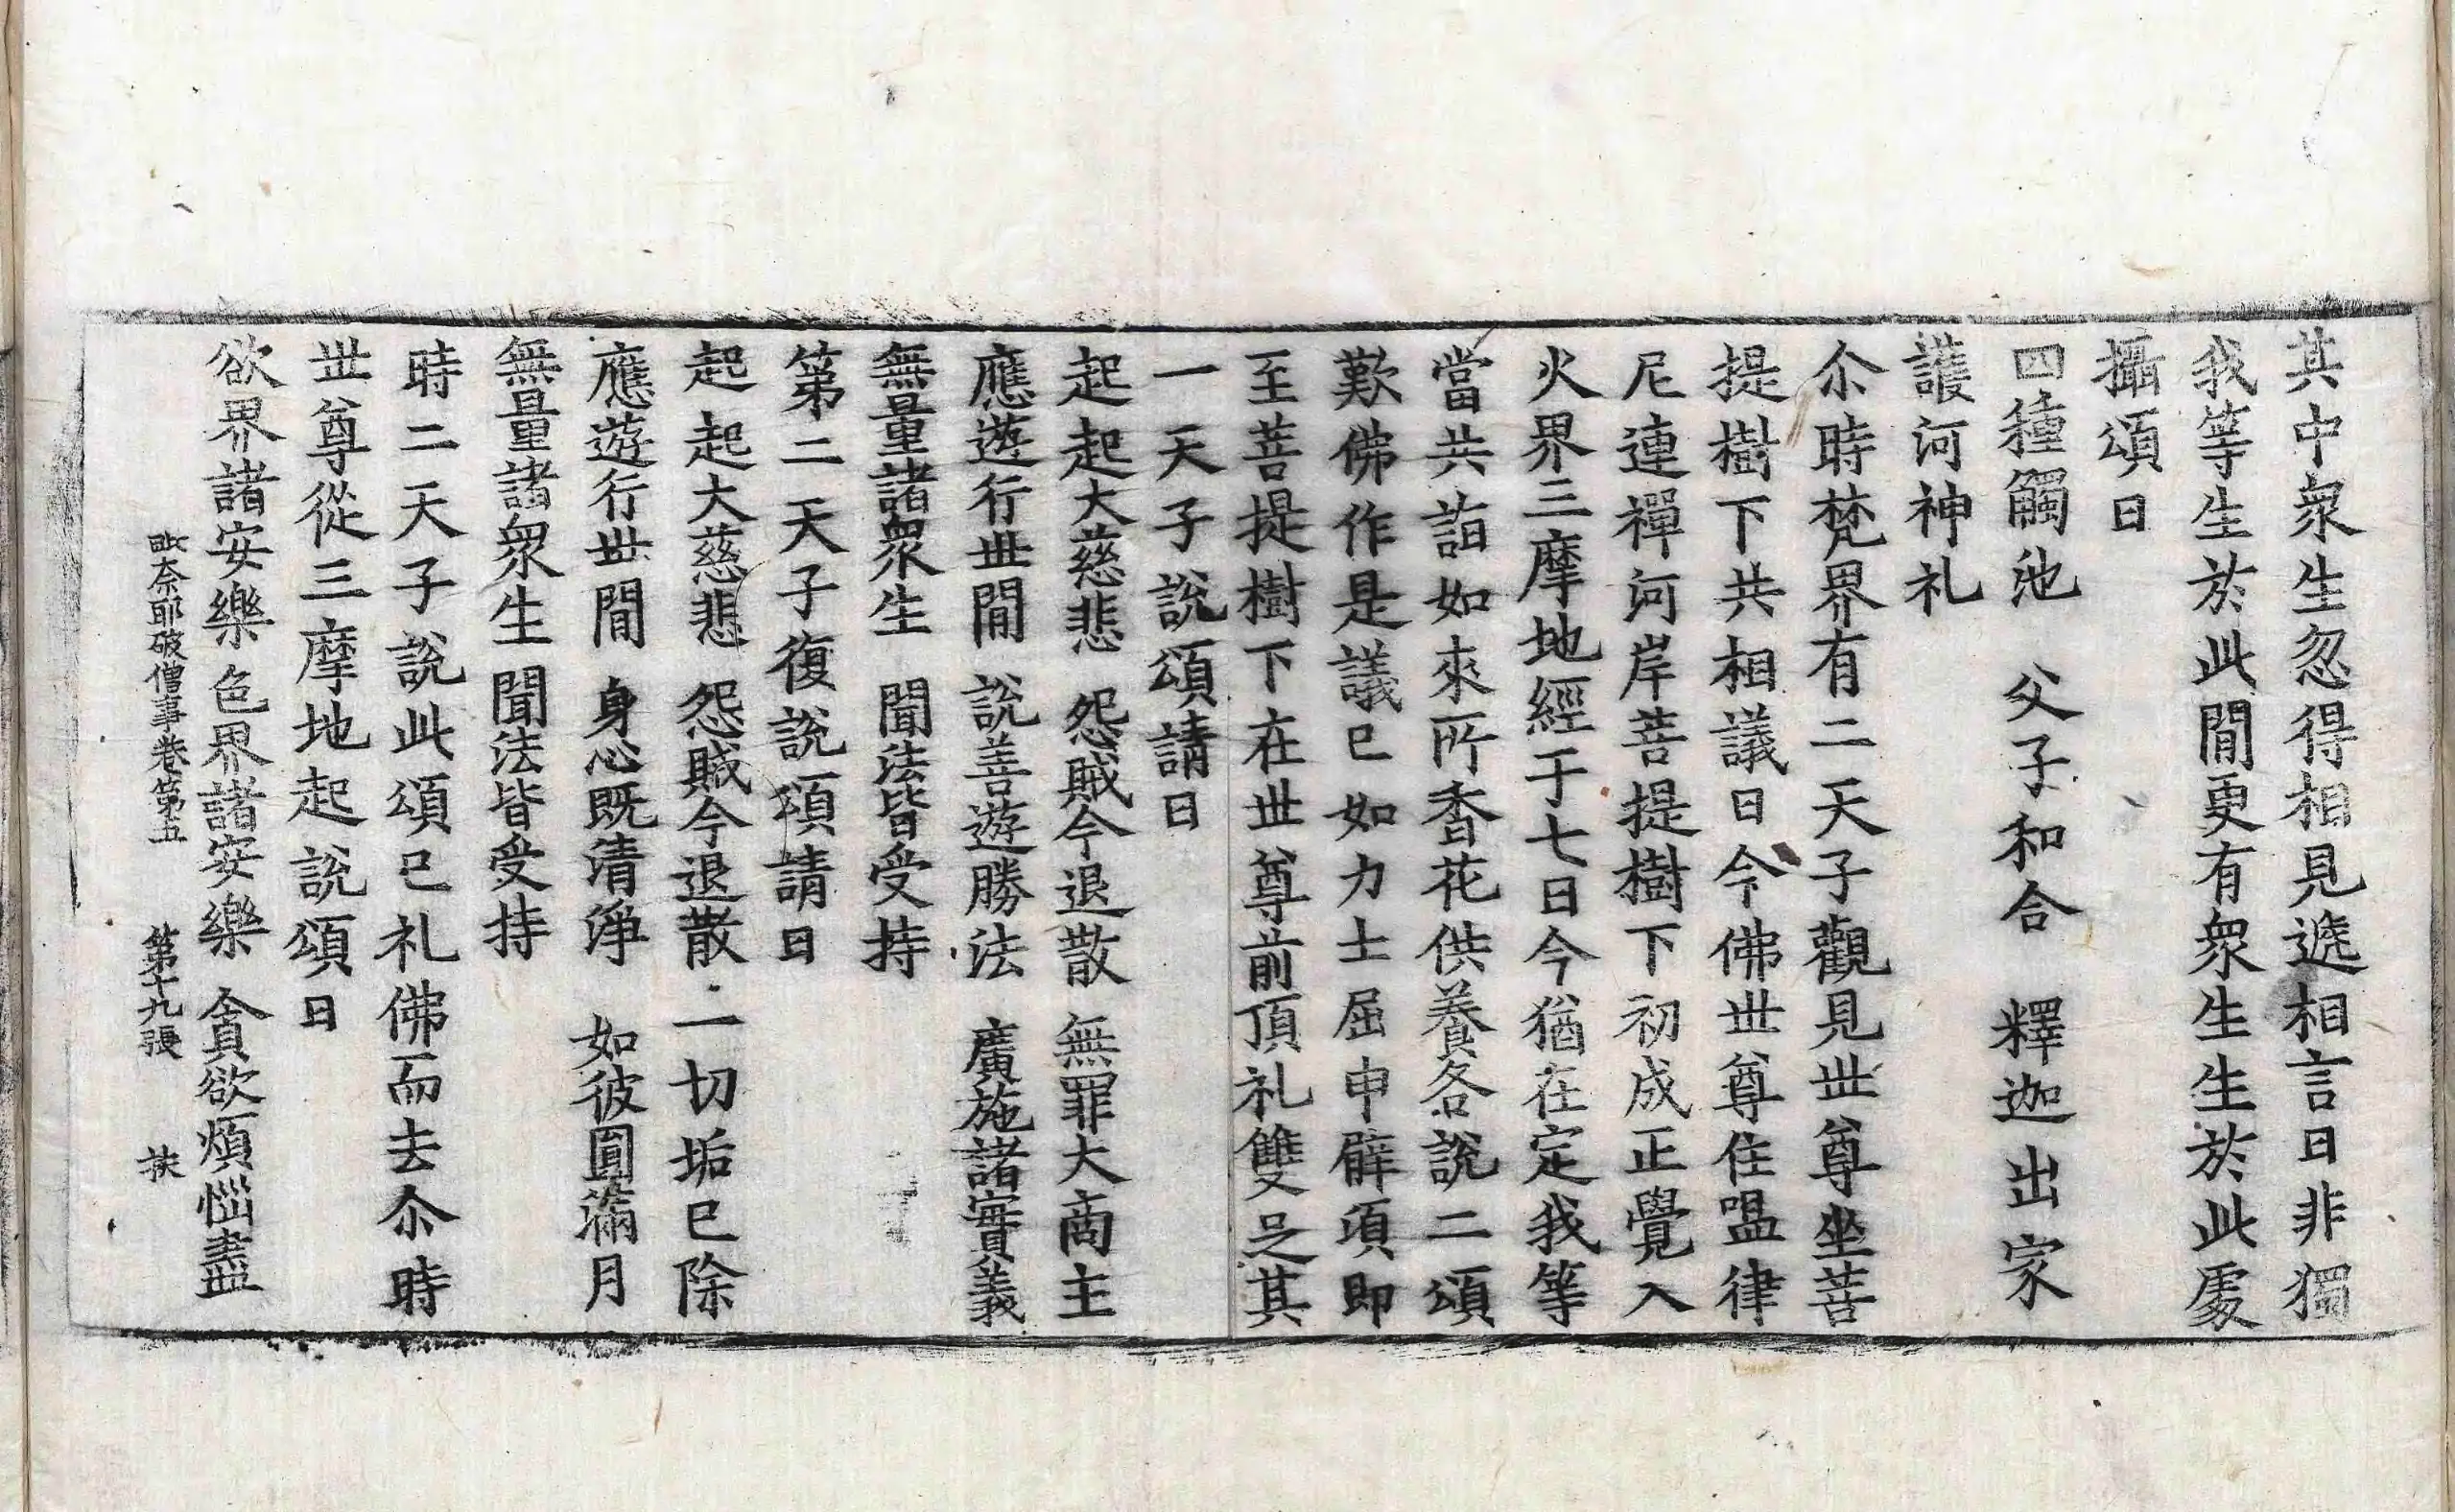 其中衆生忽得相見遞相言曰非獨
我等生於此閒更有衆生生於此處
攝頌曰
四種觸池　父子和合　釋迦出家
護河神礼
尒時梵界有二天子觀見世尊坐菩
提樹下共相議曰今佛世尊住嗢律
尼連禪河岸菩提樹下初成正覺入
火界三摩地經于七日今猶在定我等
當共詣如來所香花供養各說二頌
歎佛作是議已如力士屈申臂項即
至菩提樹下在世尊前頂礼雙足其
一天子說頌請曰
起起大慈悲　怨賊今退散　無罪大商主
應遊行世閒　說善遊勝法　廣施諸實義
無量諸衆生　聞法皆受持
第二天子復說頌請曰
起起大慈悲　怨賊今退散　一切垢已除
應遊行世間　身心既清淨　如彼圓滿月
無量諸衆生　聞法皆受持
時二天子說此頌已礼佛而去尒時
世尊從三摩地起說頌曰
欲界諸安樂　色界諸安樂　貪欲煩惱盡
毗奈耶破僧事卷第五　第十九張　抶